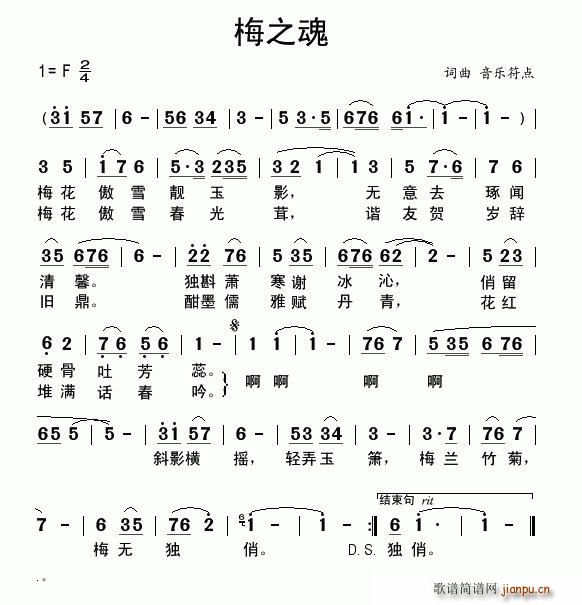 梅之魂
1= F 2/4
词曲 音乐符点
( 3i 57 | 6 - | 56 34 | 3 - | 5 3·5 | 676 6i· | i - | i - )
3 5 | i 7 6 | 5·3 235 | 3 2 1 | 1 3 | 5 7·6 | 7 6
梅花 傲雪 靓玉 影， 无 意去 琢闻
梅花 傲雪 春光 茸， 谐 友贺 岁辞
35 676 | 6 - | 22 76 | 5 35 | 6 676 | 62 | 2 - | 5 35
清馨。 独斟萧 寒谢 冰 沁， 俏留
旧鼎。 酣墨儒 雅赋 丹 青， 花红
6 2 | 76 56 | 1 - | i i | i - | 7 - | 7 - | 5 35 | 6 76
硬骨 吐芳 蕊。
堆满 话春 吟。
啊 啊 啊 啊
65 5 | 5 - | 3i 57 | 6 - | 53 34 | 3 - | 3·7 | 67 5
斜影横 摇， 轻弄玉 箫， 梅兰 竹菊，
结束句 rit
7 - | 6 35 | 76 2 | 6i - | i - :| 6 i· | i - | i - |
梅无 独 俏。 D.S. 独俏。
. 。
歌谱简谱网
jianpu.cn